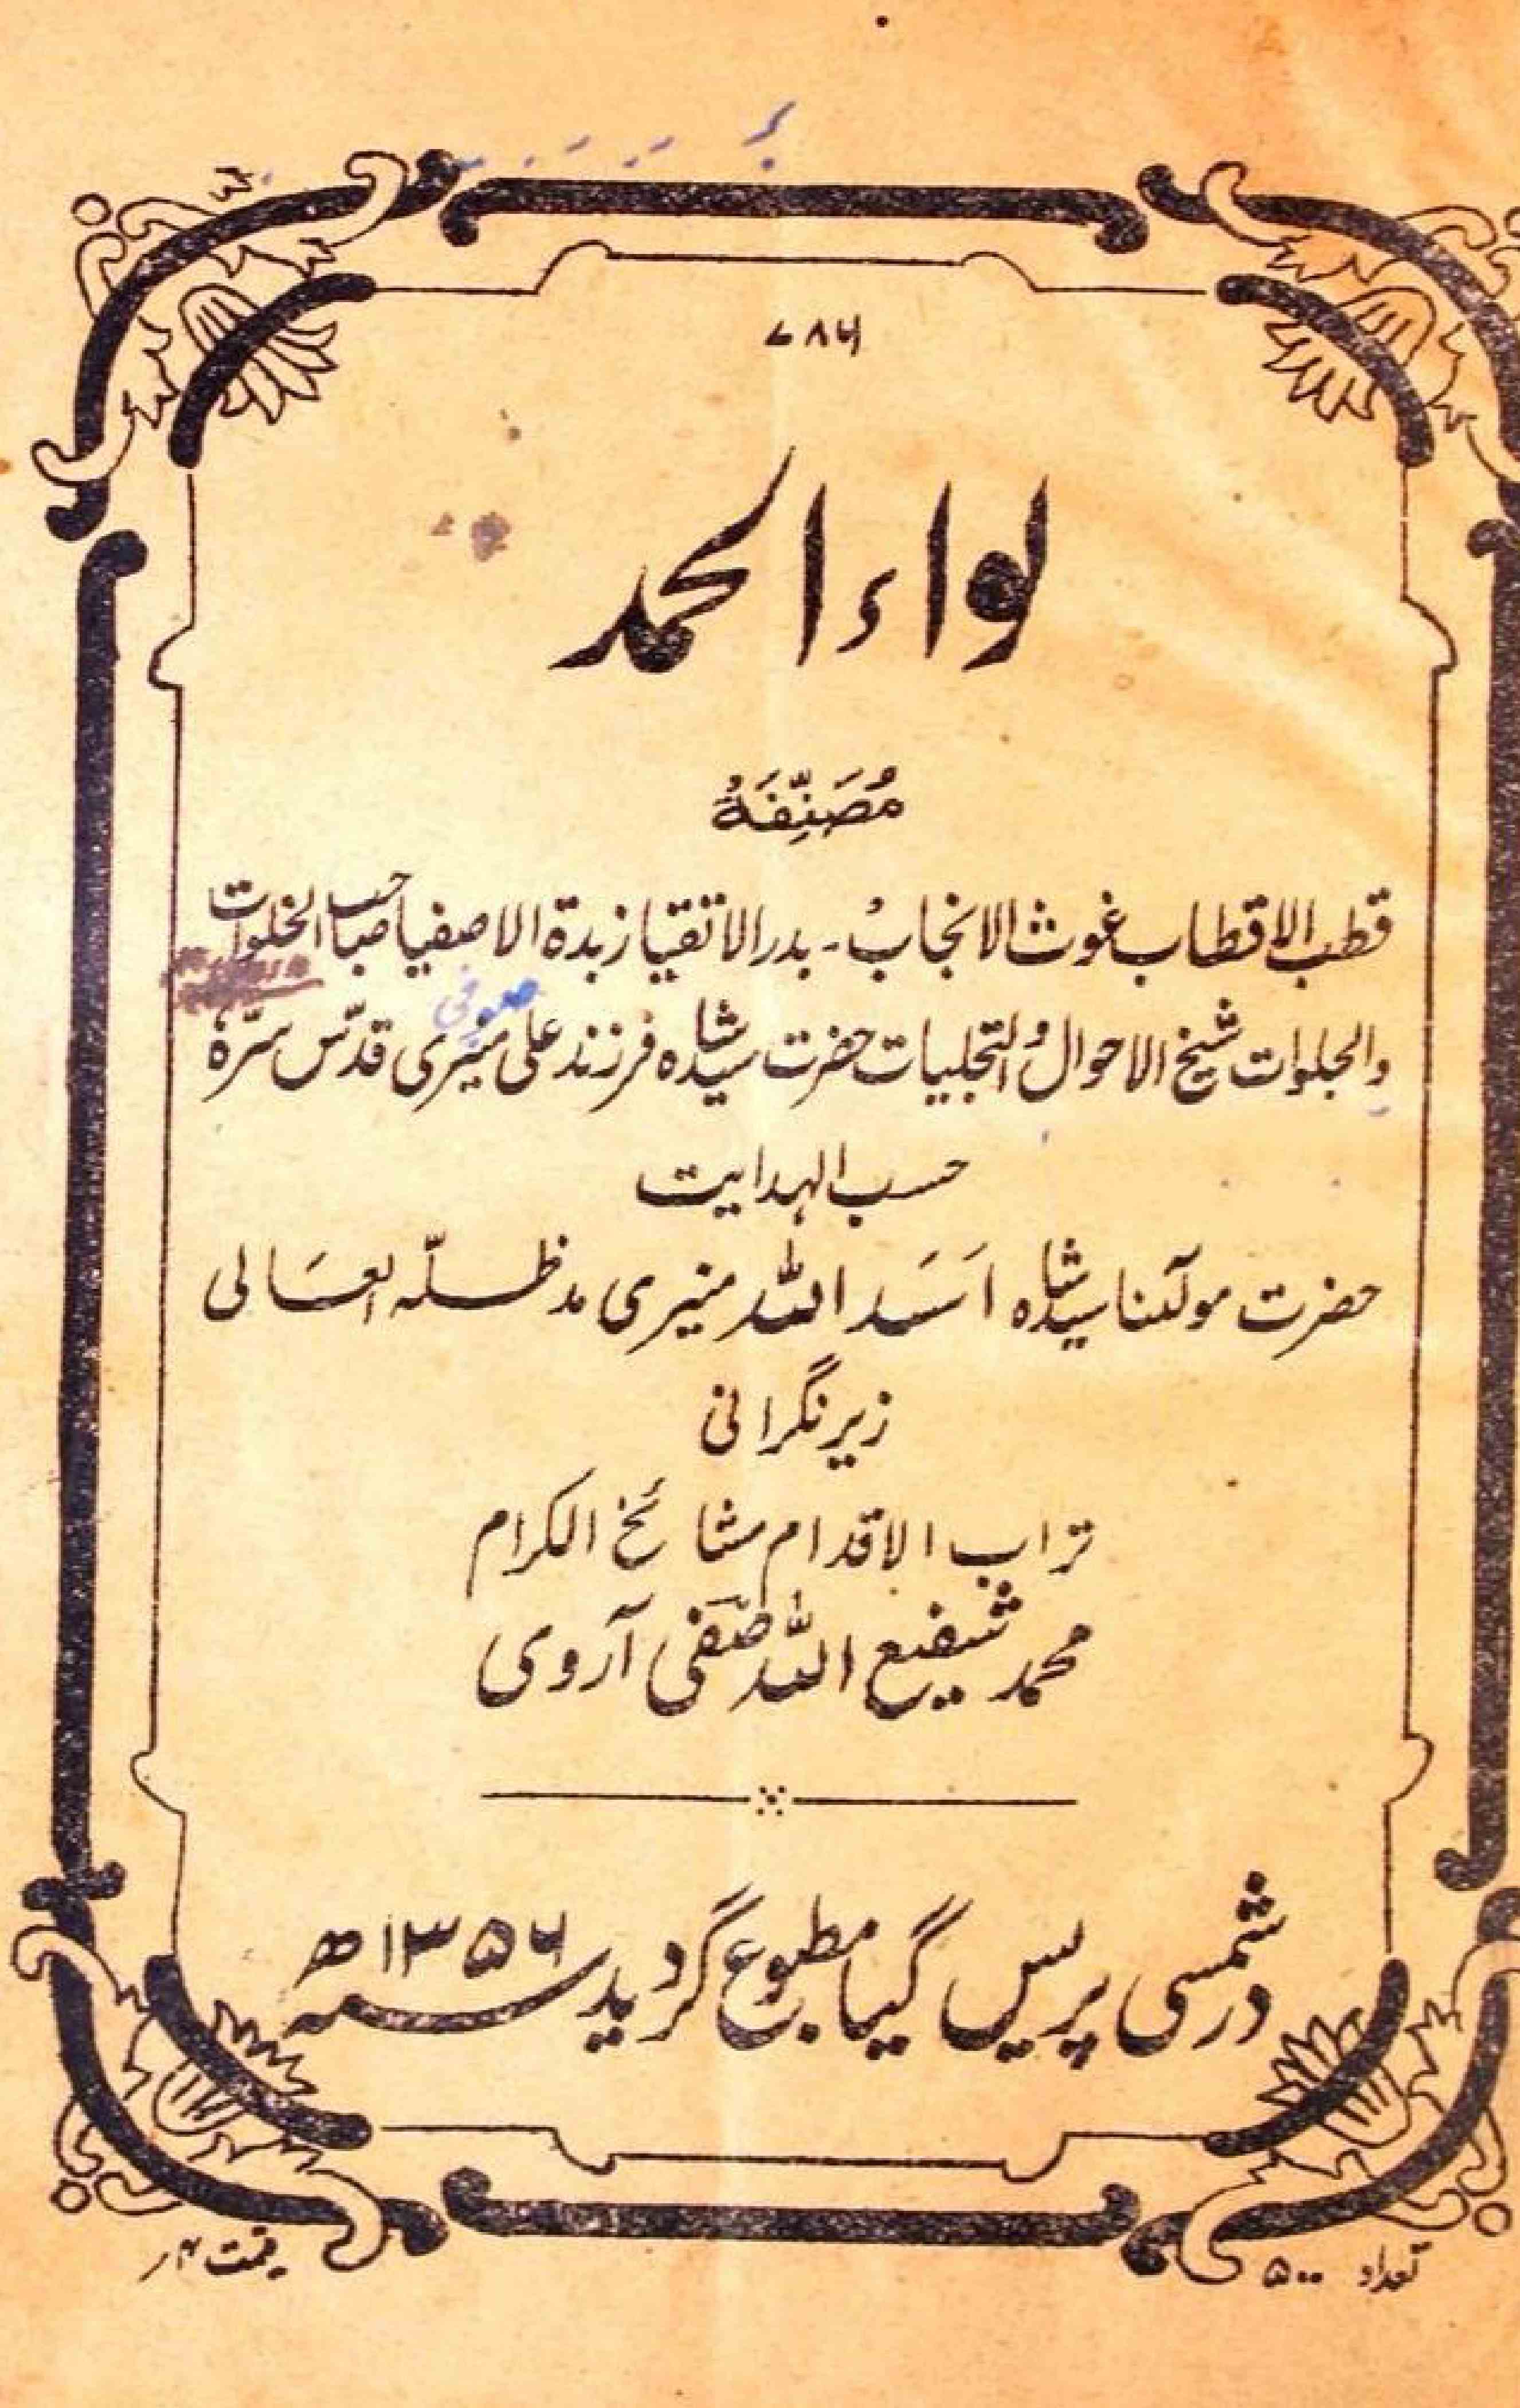 ۷۸۶
لواء الحمد
مُصَنِّفَہُ
قطب الاقطاب غوث الانجاب۔ بدر الاتقیا زبدۃ الاصفیا صاحب الخلوات
والجلوات شیخ الاحوال والتجلیات حضرت سید شاہ فرزند علی صوفی منیری قدّس سرّہٗ
حسب الہدایت
حضرت مولٰنا سید شاہ اَسَد اللہ منیری مدظلہّ العَالی
زیر نگرانی
تراب الاقدام مشائخ الکرام
محمد شفیع اللہ صَفی آروی
در شمسی پریس گیا مطبوع گردید سنہ ۱۳۵۶ھ
تعداد ۵۰۰
قیمت ۴؍